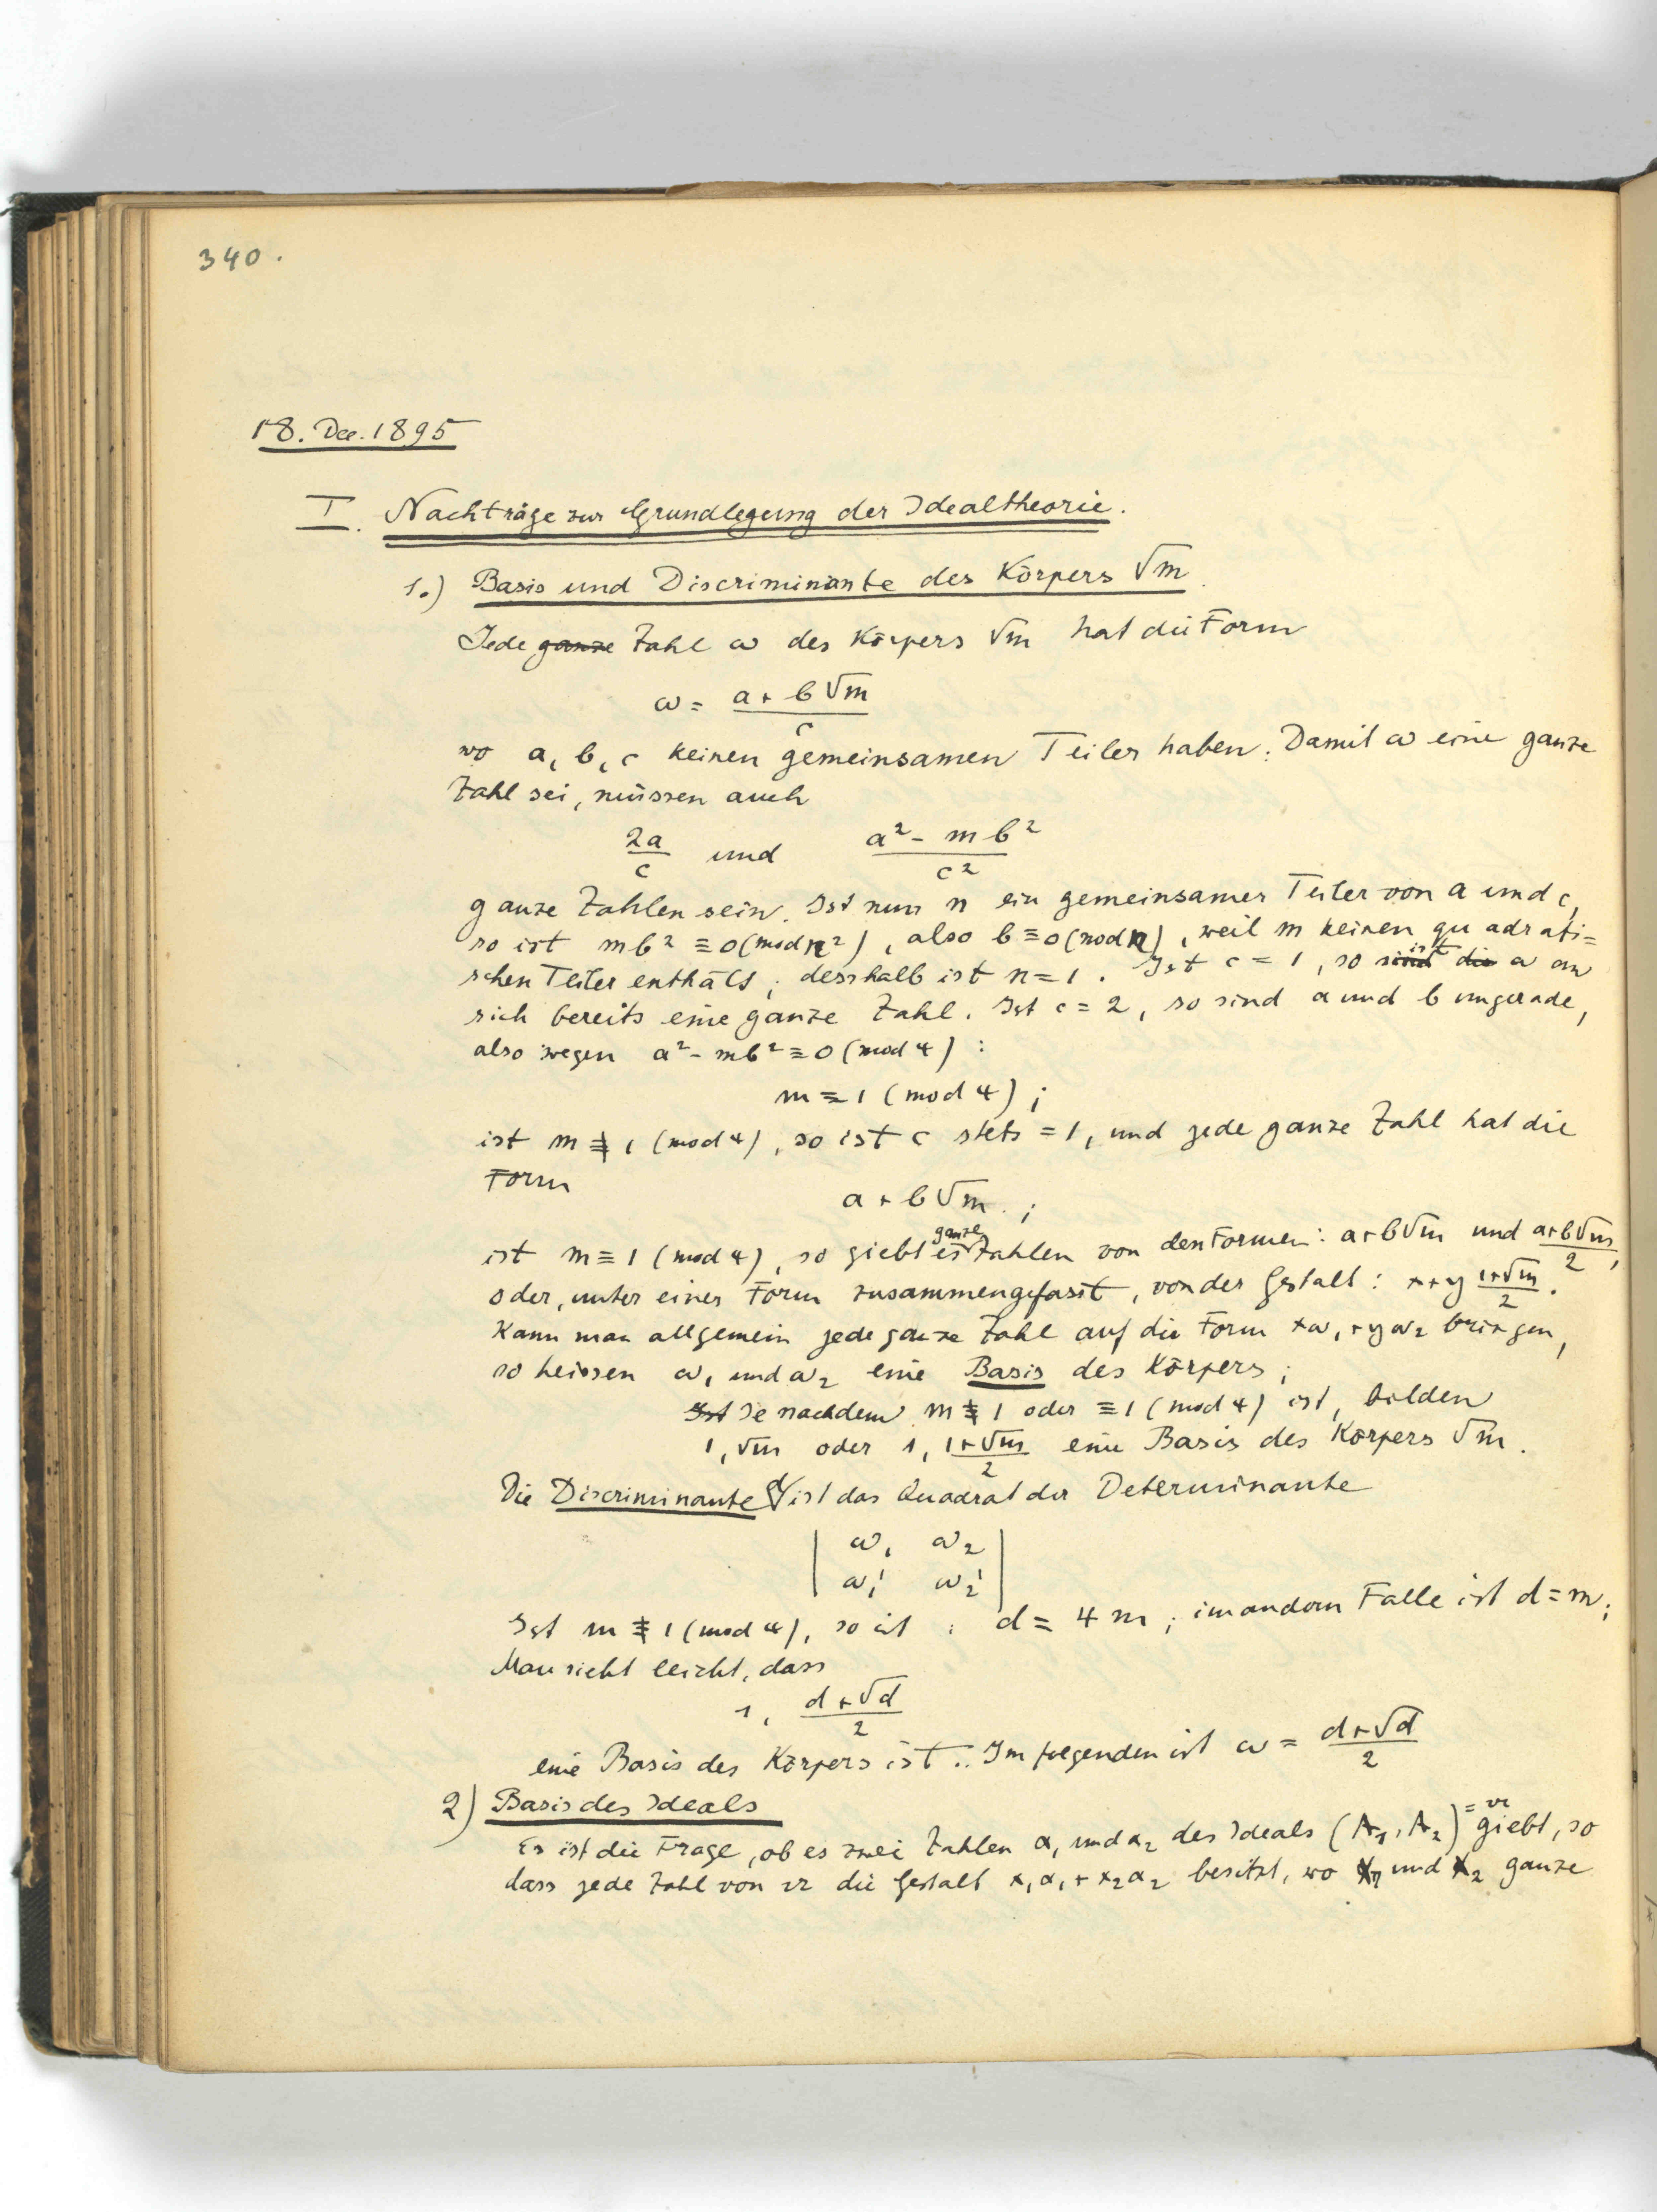 340.
18. Dec. 1895
I. Nachträge zur Grundlegung der Idealtheorie.
1.) Basis und Discriminante des Körpers √m.
Jede ganze Zahl ω des Körpers √m hat die Form
ω = (a + b√m)/c
wo a, b, c keinen gemeinsamen Teiler haben. Damit ω eine ganze
Zahl sei, müssen auch
2a/c und (a² - mb²)/c²
ganze Zahlen sein. Ist nun n ein gemeinsamer Teiler von a und c,
so ist mb² ≡ 0 (mod n²), also b ≡ 0 (mod n), weil m keinen quadrati=
schen Teiler enthält; desshalb ist n = 1. Ist c = 1, so sind die ist ω an
sich bereits eine ganze Zahl. Ist c = 2, so sind a und b ungerade,
also wegen a² - mb² ≡ 0 (mod 4) :
m ≡ 1 (mod 4) ;
ist m ≢ 1 (mod 4), so ist c stets = 1, und jede ganze Zahl hat die
Form
a + b√m. ;
ist m ≡ 1 (mod 4), so giebt es ganze Zahlen von den Formen: a+b√m und (a+b√m)/2,
oder, unter einer Form zusammengefasst, von der Gestalt: x+y (1+√m)/2.
Kann man allgemein jede ganze Zahl auf die Form xω₁+yω₂ bringen,
so heissen ω₁ und ω₂ eine Basis des Körpers;
Ist Je nachdem m ≢ 1 oder ≡ 1 (mod 4) ist, bilden
1, √m oder 1, (1+√m)/2 eine Basis des Körpers √m.
Die Discriminante d ist das Quadrat der Determinante
| ω₁ ω₂ |
| ω₁' ω₂' |
Ist m ≢ 1 (mod 4), so ist : d = 4m ; im andern Falle ist d = m;
Man sieht leicht, dass
1, (d+√d)/2
eine Basis des Körpers ist.. Im folgenden ist ω = (d+√d)/2
2) Basis des Ideals
Es ist die Frage, ob es zwei Zahlen α₁ und α₂ des Ideals (A₁, A₂) = 𝔞 giebt, so
dass jede Zahl von 𝔞 die Gestalt x₁α₁ + x₂α₂ besitzt, wo x₁ und x₂ ganze